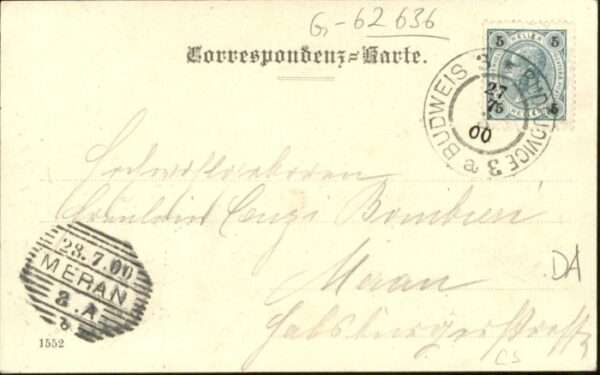 G-62636
Correspondenz=Karte.
5 HELLER 5
5
BUDWEIS 3 * BUDĚJOVICE 3 a
27
7
00
Hochwohlgeboren
Fräulein Cenzi Bombieri
Meran
Habsburgerstraße
DA
28.7.00
MERAN
8.A
1552
CS